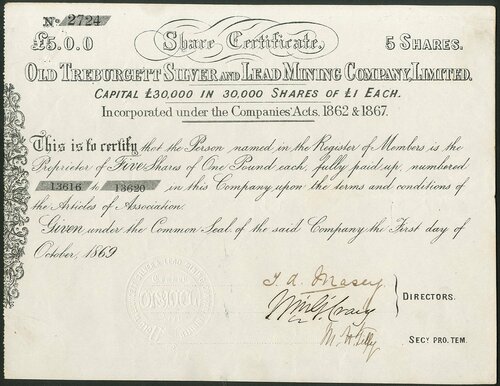 No. 2724
£5.0.0 Share Certificate, 5 SHARES.
OLD TREBURGETT SILVER AND LEAD MINING COMPANY, LIMITED.
CAPITAL £30,000 IN 30,000 SHARES OF £1 EACH.
Incorporated under the Companies' Acts. 1862 & 1867.
This is to certify that the Person named in the Register of Members is the
Proprietor of Five Shares of One Pound each, fully paid up, numbered
13616 to 13620 in this Company upon the terms and conditions of
the Articles of Association.
Given under the Common Seal of the said Company the First day of
October, 1869
T. A. Masey
Wm G. Craig
DIRECTORS.
SECY PRO. TEM.
LONDON